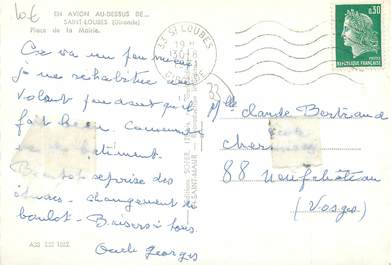 10€
EN AVION AU-DESSUS DE...
SAINT-LOUBES (Gironde)
Place de la Mairie.
33 ST LOUBES
19 H
13-8
GIRONDE
0,30
REPUBLIQUE FRANÇAISE
POSTES
33
Ça va un peu mieux
je me réhabitue au
volant pendant qu'il
fait beau. Comment
va le bâtiment.
Bientôt reprise des
études - changement de
boulot - Baisers à tous.
Oncle Georges
Mlle Claude Bertrand
88 Neufchâteau
(Vosges)